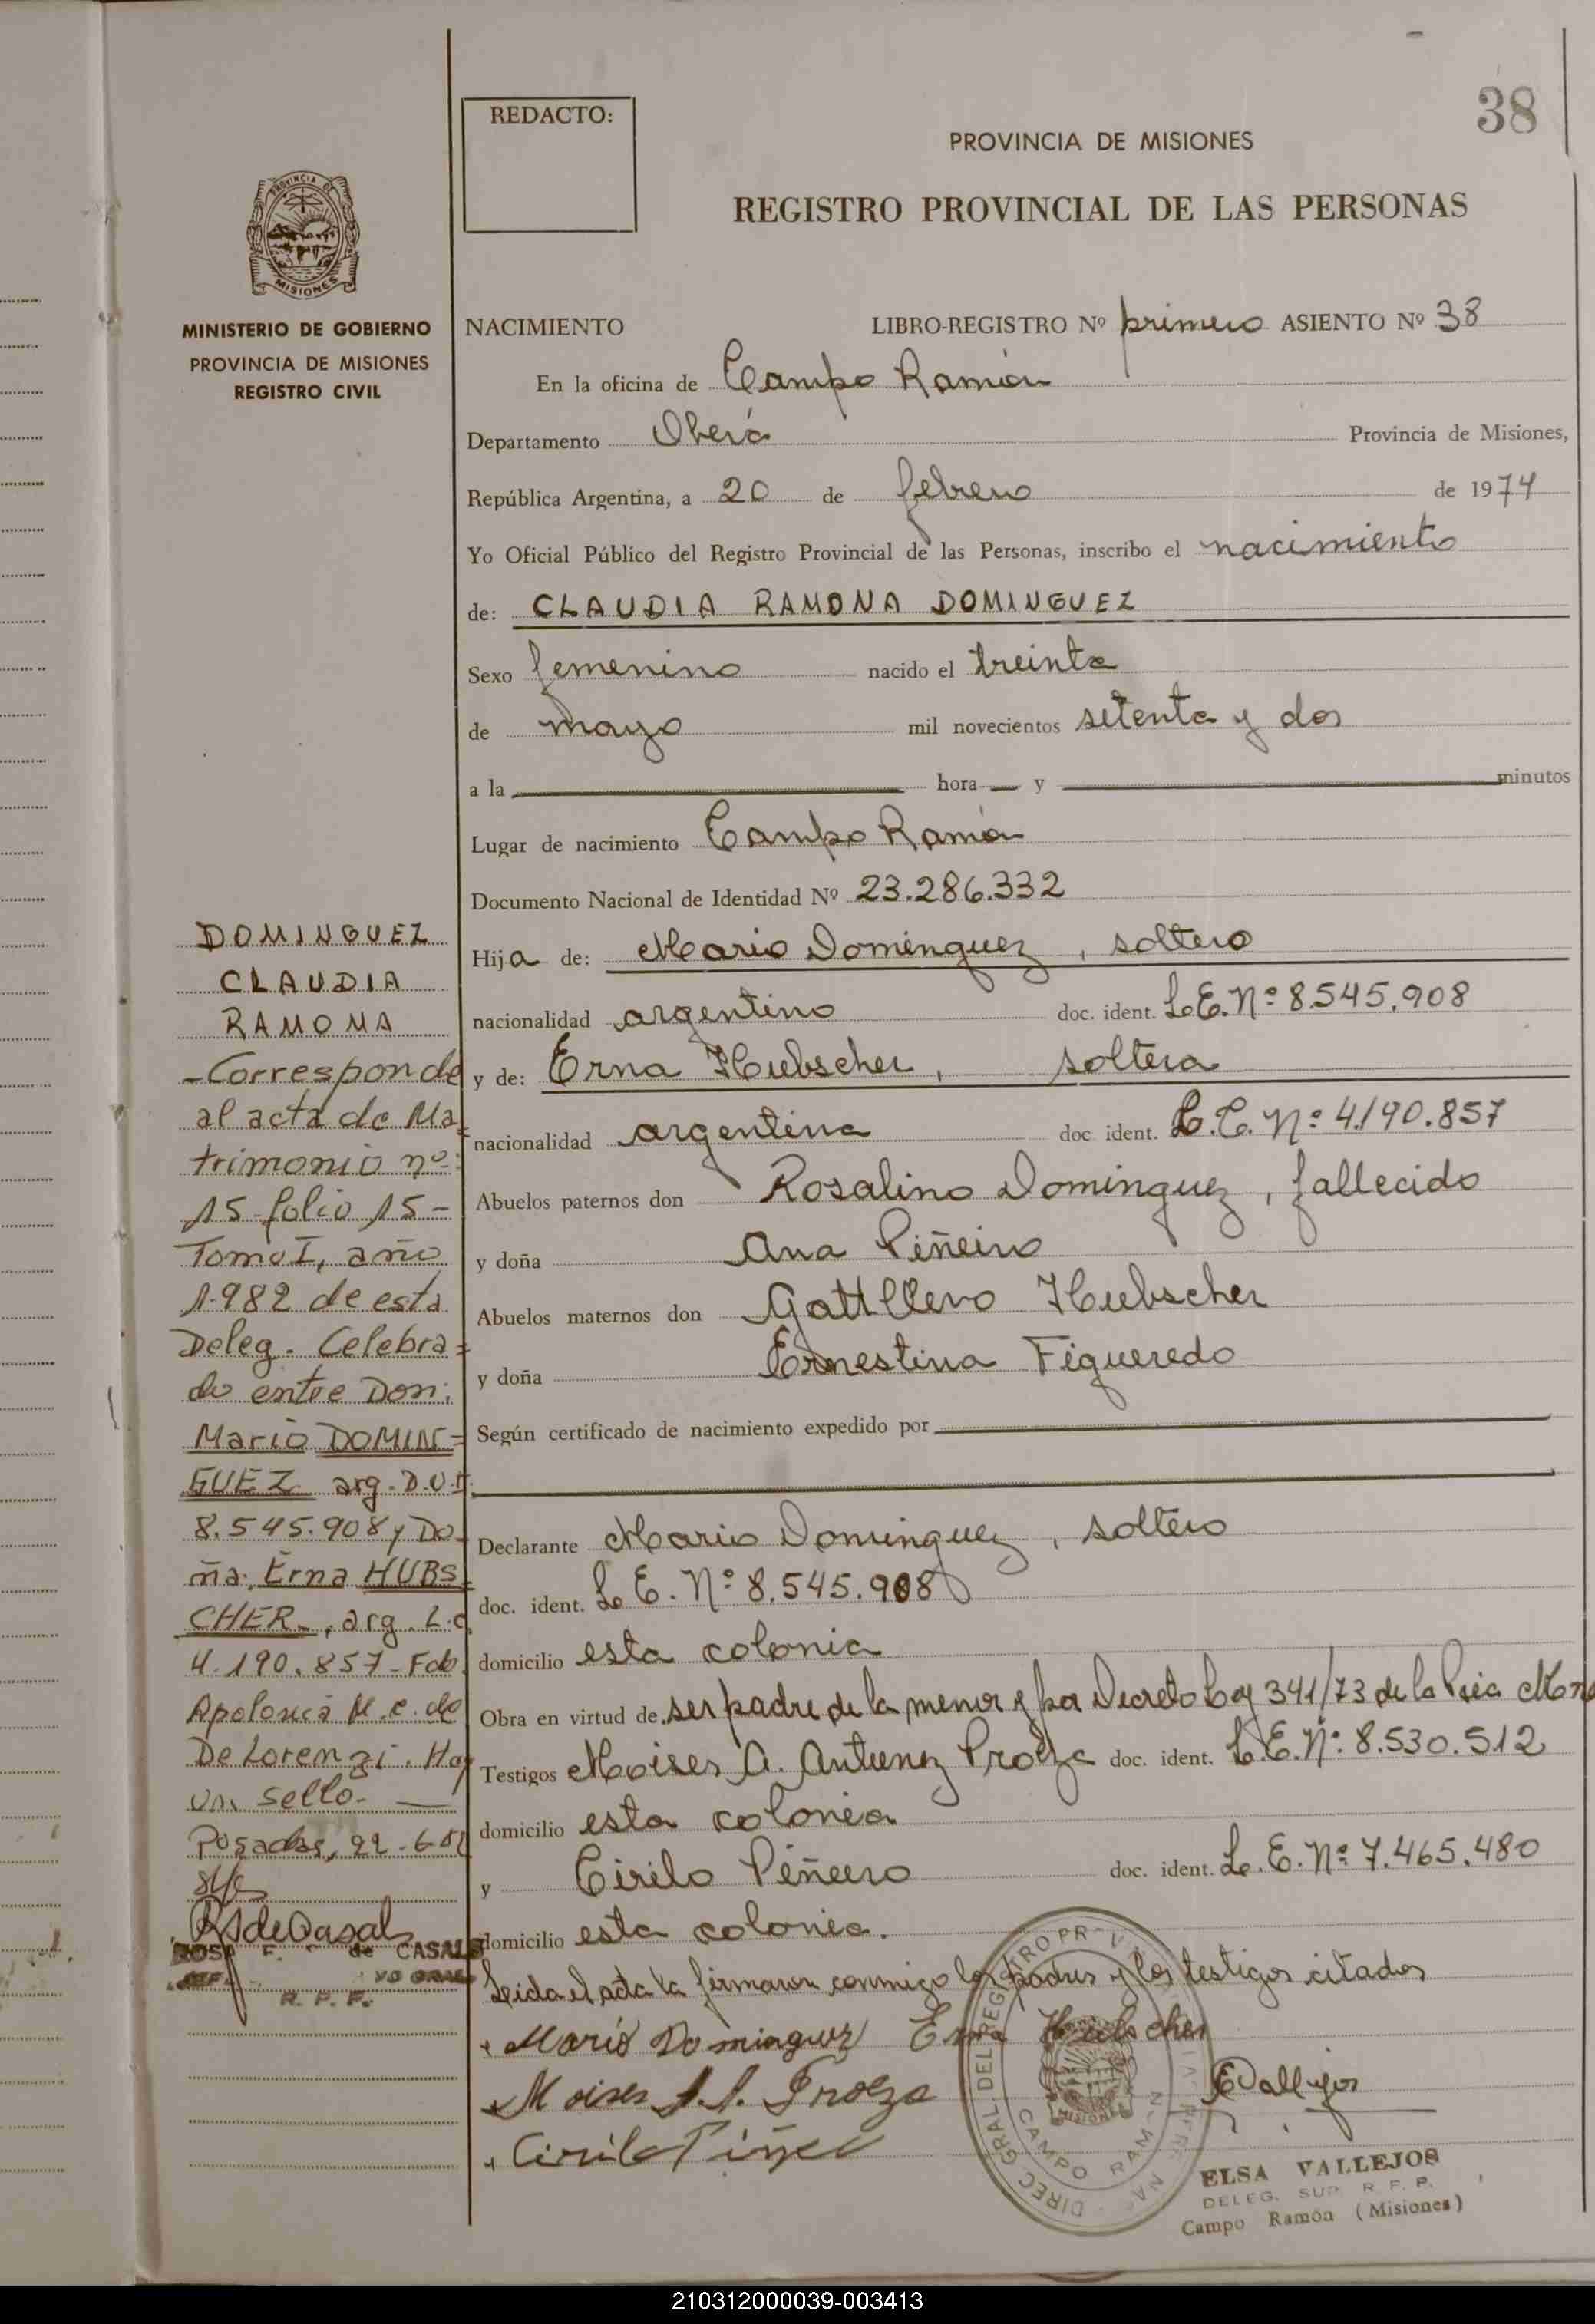 38
REDACTO:
PROVINCIA DE MISIONES
REGISTRO PROVINCIAL DE LAS PERSONAS
PROVINCIA DE
MISIONES
MINISTERIO DE GOBIERNO
PROVINCIA DE MISIONES
REGISTRO CIVIL
NACIMIENTO LIBRO-REGISTRO Nº primero ASIENTO Nº 38
En la oficina de Campo Ramón
Departamento Oberá Provincia de Misiones,
República Argentina, a 20 de febrero de 1974
Yo Oficial Público del Registro Provincial de las Personas, inscribo el nacimiento
de: CLAUDIA RAMONA DOMINGUEZ
Sexo femenino nacido el treinta
de mayo mil novecientos setenta y dos
a la hora y minutos
Lugar de nacimiento Campo Ramón
Documento Nacional de Identidad Nº 23.286.332
Hija de: Mario Dominguez, soltero
nacionalidad argentino doc. ident. L.E.Nº 8.545.908
y de: Erna Hubscher, soltera
nacionalidad argentina doc. ident. L.C. Nº 4.190.857
Abuelos paternos don Rosalino Dominguez, fallecido
y doña Ana Piñeiro
Abuelos maternos don Hubscher
y doña Ernestina Figueredo
Según certificado de nacimiento expedido por
Declarante Mario Dominguez, soltero
doc. ident. L.E. Nº 8.545.908
domicilio esta colonia
Obra en virtud de ser padre de la menor y por Decreto Ley 341/73 de la
Testigos Moises A. Antunez Proeza doc. ident. L.E.Nº 8.530.512
domicilio esta colonia
y Cirilo Piñeiro doc. ident. L.E. Nº 7.465.480
domicilio esta colonia.
Leida el acta la firmaron conmigo los padres y los testigos citados
Mario Dominguez Erna Hubscher
Moises A. A. Proeza
Cirilo
EVallejos
ELSA VALLEJOS
DELEG. SUP. R. P. P.
Campo Ramón (Misiones)
DIREC. GRAL. DEL REGISTRO
CAMPO RAMON
MISIONES
DOMINGUEZ
CLAUDIA
RAMONA
-Corresponde
al acta de Ma
trimonio nº:
15 folio 15-
Tomo I, año
1.982 de esta
Deleg. Celebra=
do entre Don:
Mario DOMIN=
GUEZ arg. D.U.
8.545.908 y Do-
ña: Erna HUBS
CHER-, arg. L.C.
4.190.857- Fdo.
Apolonia M. C. de
De Lorenzi. Hay
un sello.-
Posadas, 22-6-82
ROSA F. de CASALS
R. P. P.
210312000039-003413